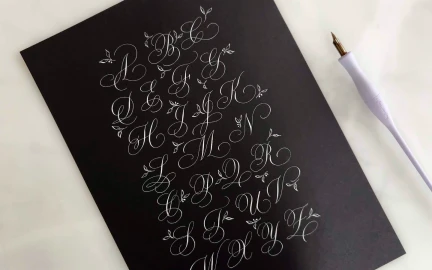 A B C
D E F G
H I J K
L M N
O P Q R
S T U V
W X Y Z